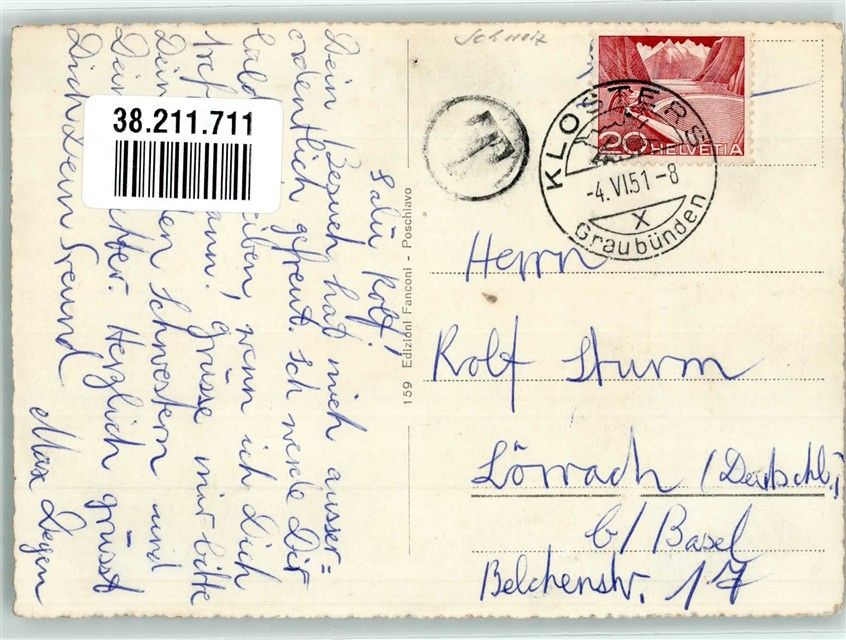 Schweiz
38.211.711
T
KLOSTERS
-4.VI51-8
X
Graubünden
20 HELVETIA
159 Edizioni Fanconi - Poschiavo
Salü Rolf!
Dein Besuch hat mich ausser=
ordentlich gefreut. Ich werde Dir
bald schreiben, wenn ich Dich
treffen kann. Grüsse mir bitte
Deinen Schwestern und
Dein
Dich Dein Freund
chter. Herzlich grüsst
Max Degen
Herrn
Rolf Sturm
Lörrach (Deutschl.)
b/Basel
Belchenstr. 17